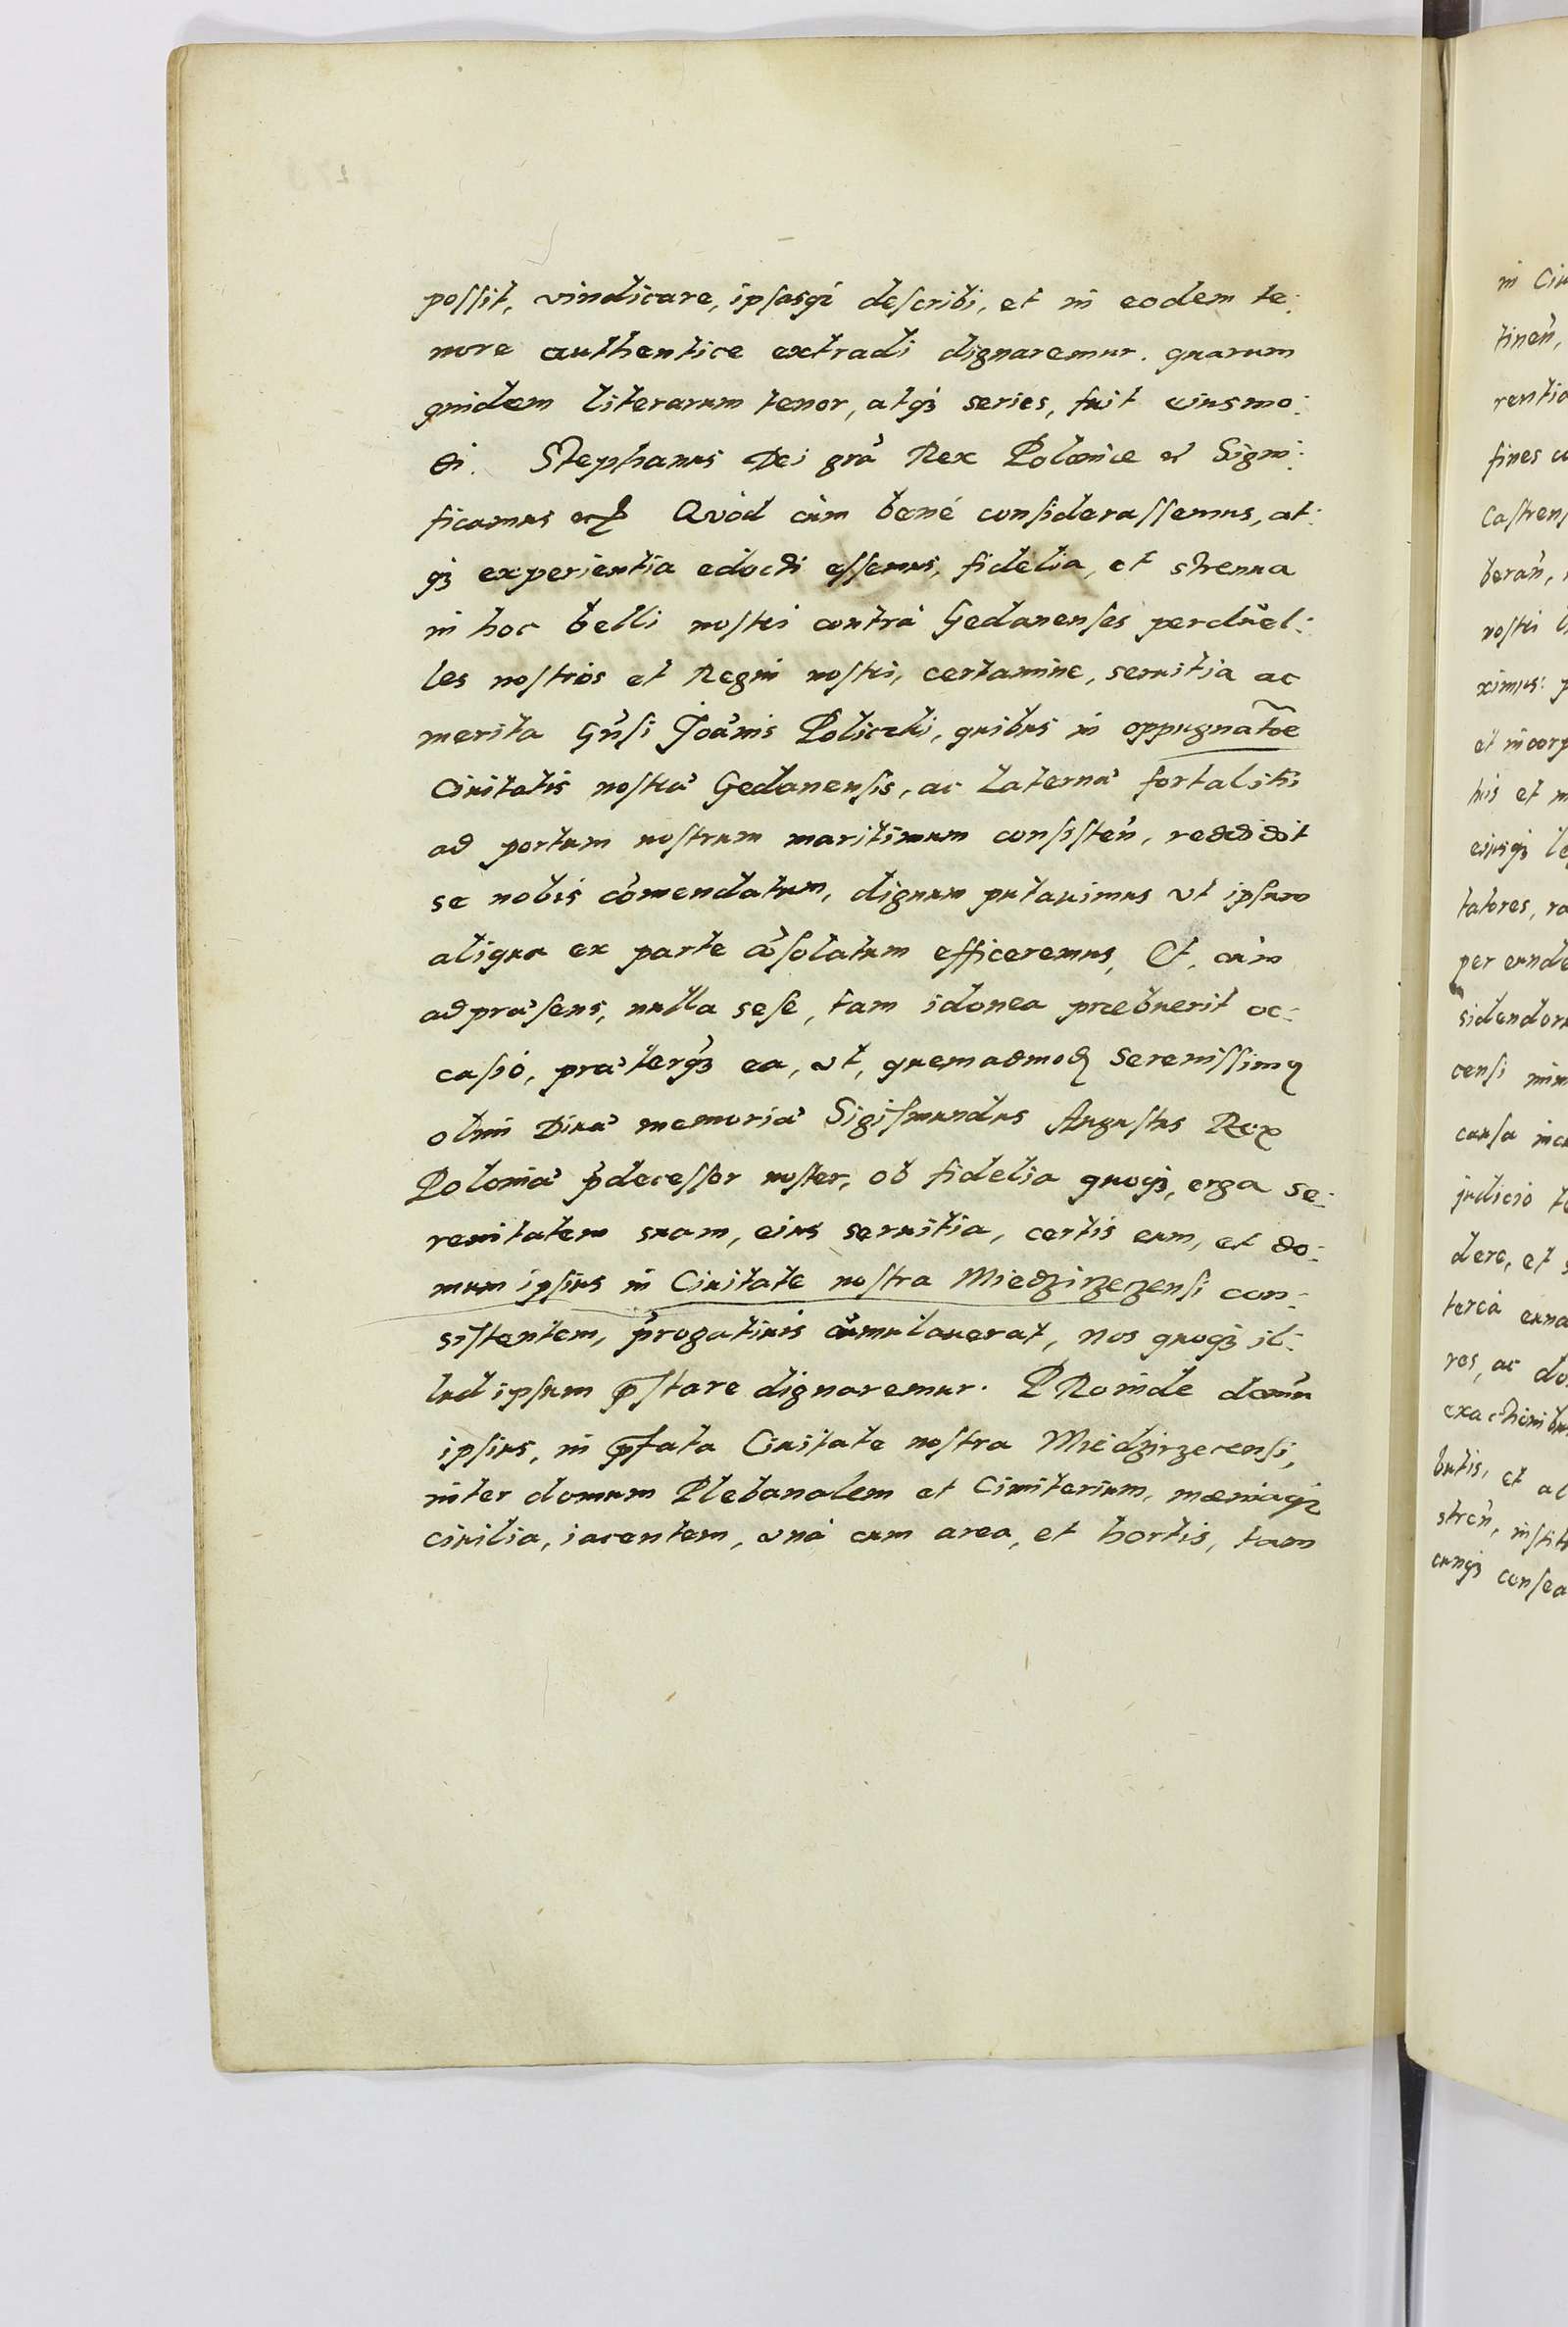 possit, vindicare, ipsasq3 describi, et in eodem te:
nore authentice extradi dignaremur. quarum
quidem literarum tenor, atq3 series, fuit eiusmo:
di. Stephanus Dei grã Rex Poloniæ et Signi:
ficamus etc Quòd cùm benè considerassemus, at:
q3 experientia edocti essemus, fidelia, et strenua
in hoc belli nostri contrà Gedanenses perduel:
les nostros et Regni nostri, certamine, seruitia ac
merita Gñsi Joãnis Policzki, quibus in oppugnatõe
Ciuitatis nostræ Gedanensis, ac Laternæ fortalitij
ad portum nostrum maritimum consisteñ, reddidit
se nobis cõmendatum, dignum putauimus vt ipsum
aliqua ex parte cõsolatum efficeremus, Et, cùm
ad præsens, nulla sese, tam idonea præbuerit oc:
casio, præterq3 ea, vt, quemadmod Serenissimq
olim Diuæ memoriæ Sigismundus Augustus Rex
Poloniæ p̃decessor noster, ob fidelia quoq3, erga se:
renitatem suam, eius seruitia, certis eum, et do:
mum ipsius in Ciuitate nostra Miedzirzezensi con:
sistentem, p̃rogatiuis cũmulauerat, nos quoq3 il:
lud ipsum p̃stare dignaremur. PRoinde domũ
ipsius, in p̃fata Ciuitate nostra Miedzirzecensi,
inter domum Plebanalem et Cimiterium, mœniaq3
ciuilia, iacentem, vnà cum area, et hortis, tam
in Ciu
tineñ,
rentia
fines
Castrens
berañ,
nostri
ximus:
et incorp
his et
eiusq3
tatores,
per eunde
sidendoru
censi
causa
judicio
dere, et
tereà
res, ac do
exactionibu
butis, et al
streñ, instit
cunq3 consea